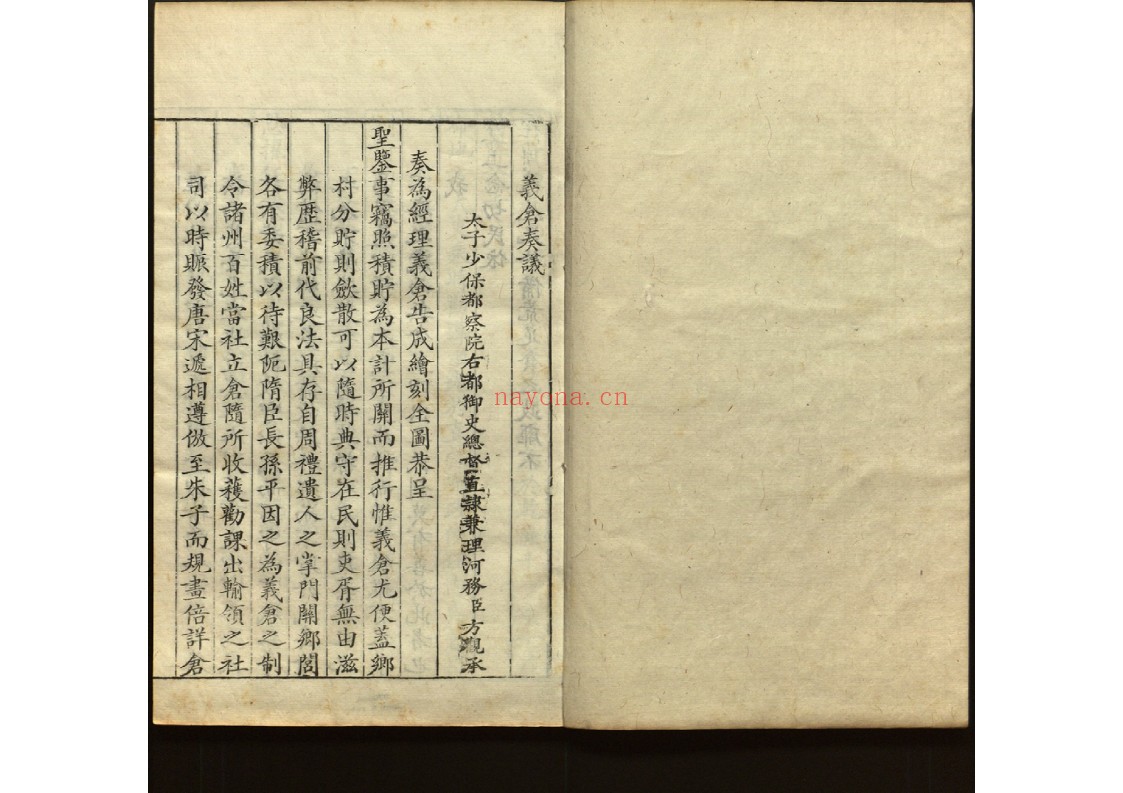 義倉奏議
太子少保都察院右都御史總督直隸兼理河務臣方觀承
奏為經理義倉告成繪刻全圖恭呈
聖鑒事竊照積貯為本計所關而推行惟義倉尤便蓋鄉
村分貯則斂散可以隨時典守在民則吏胥無由滋
弊歷稽前代良法具存自周禮遺人之掌門關鄉閭
各有委積以待艱阨隋臣長孫平因之為義倉之制
令諸州百姓當社立倉隨所收穫勸課出輸領之社
司以時賑發唐宋遞相遵倣至朱子而規畫倍詳倉
nayona.cn